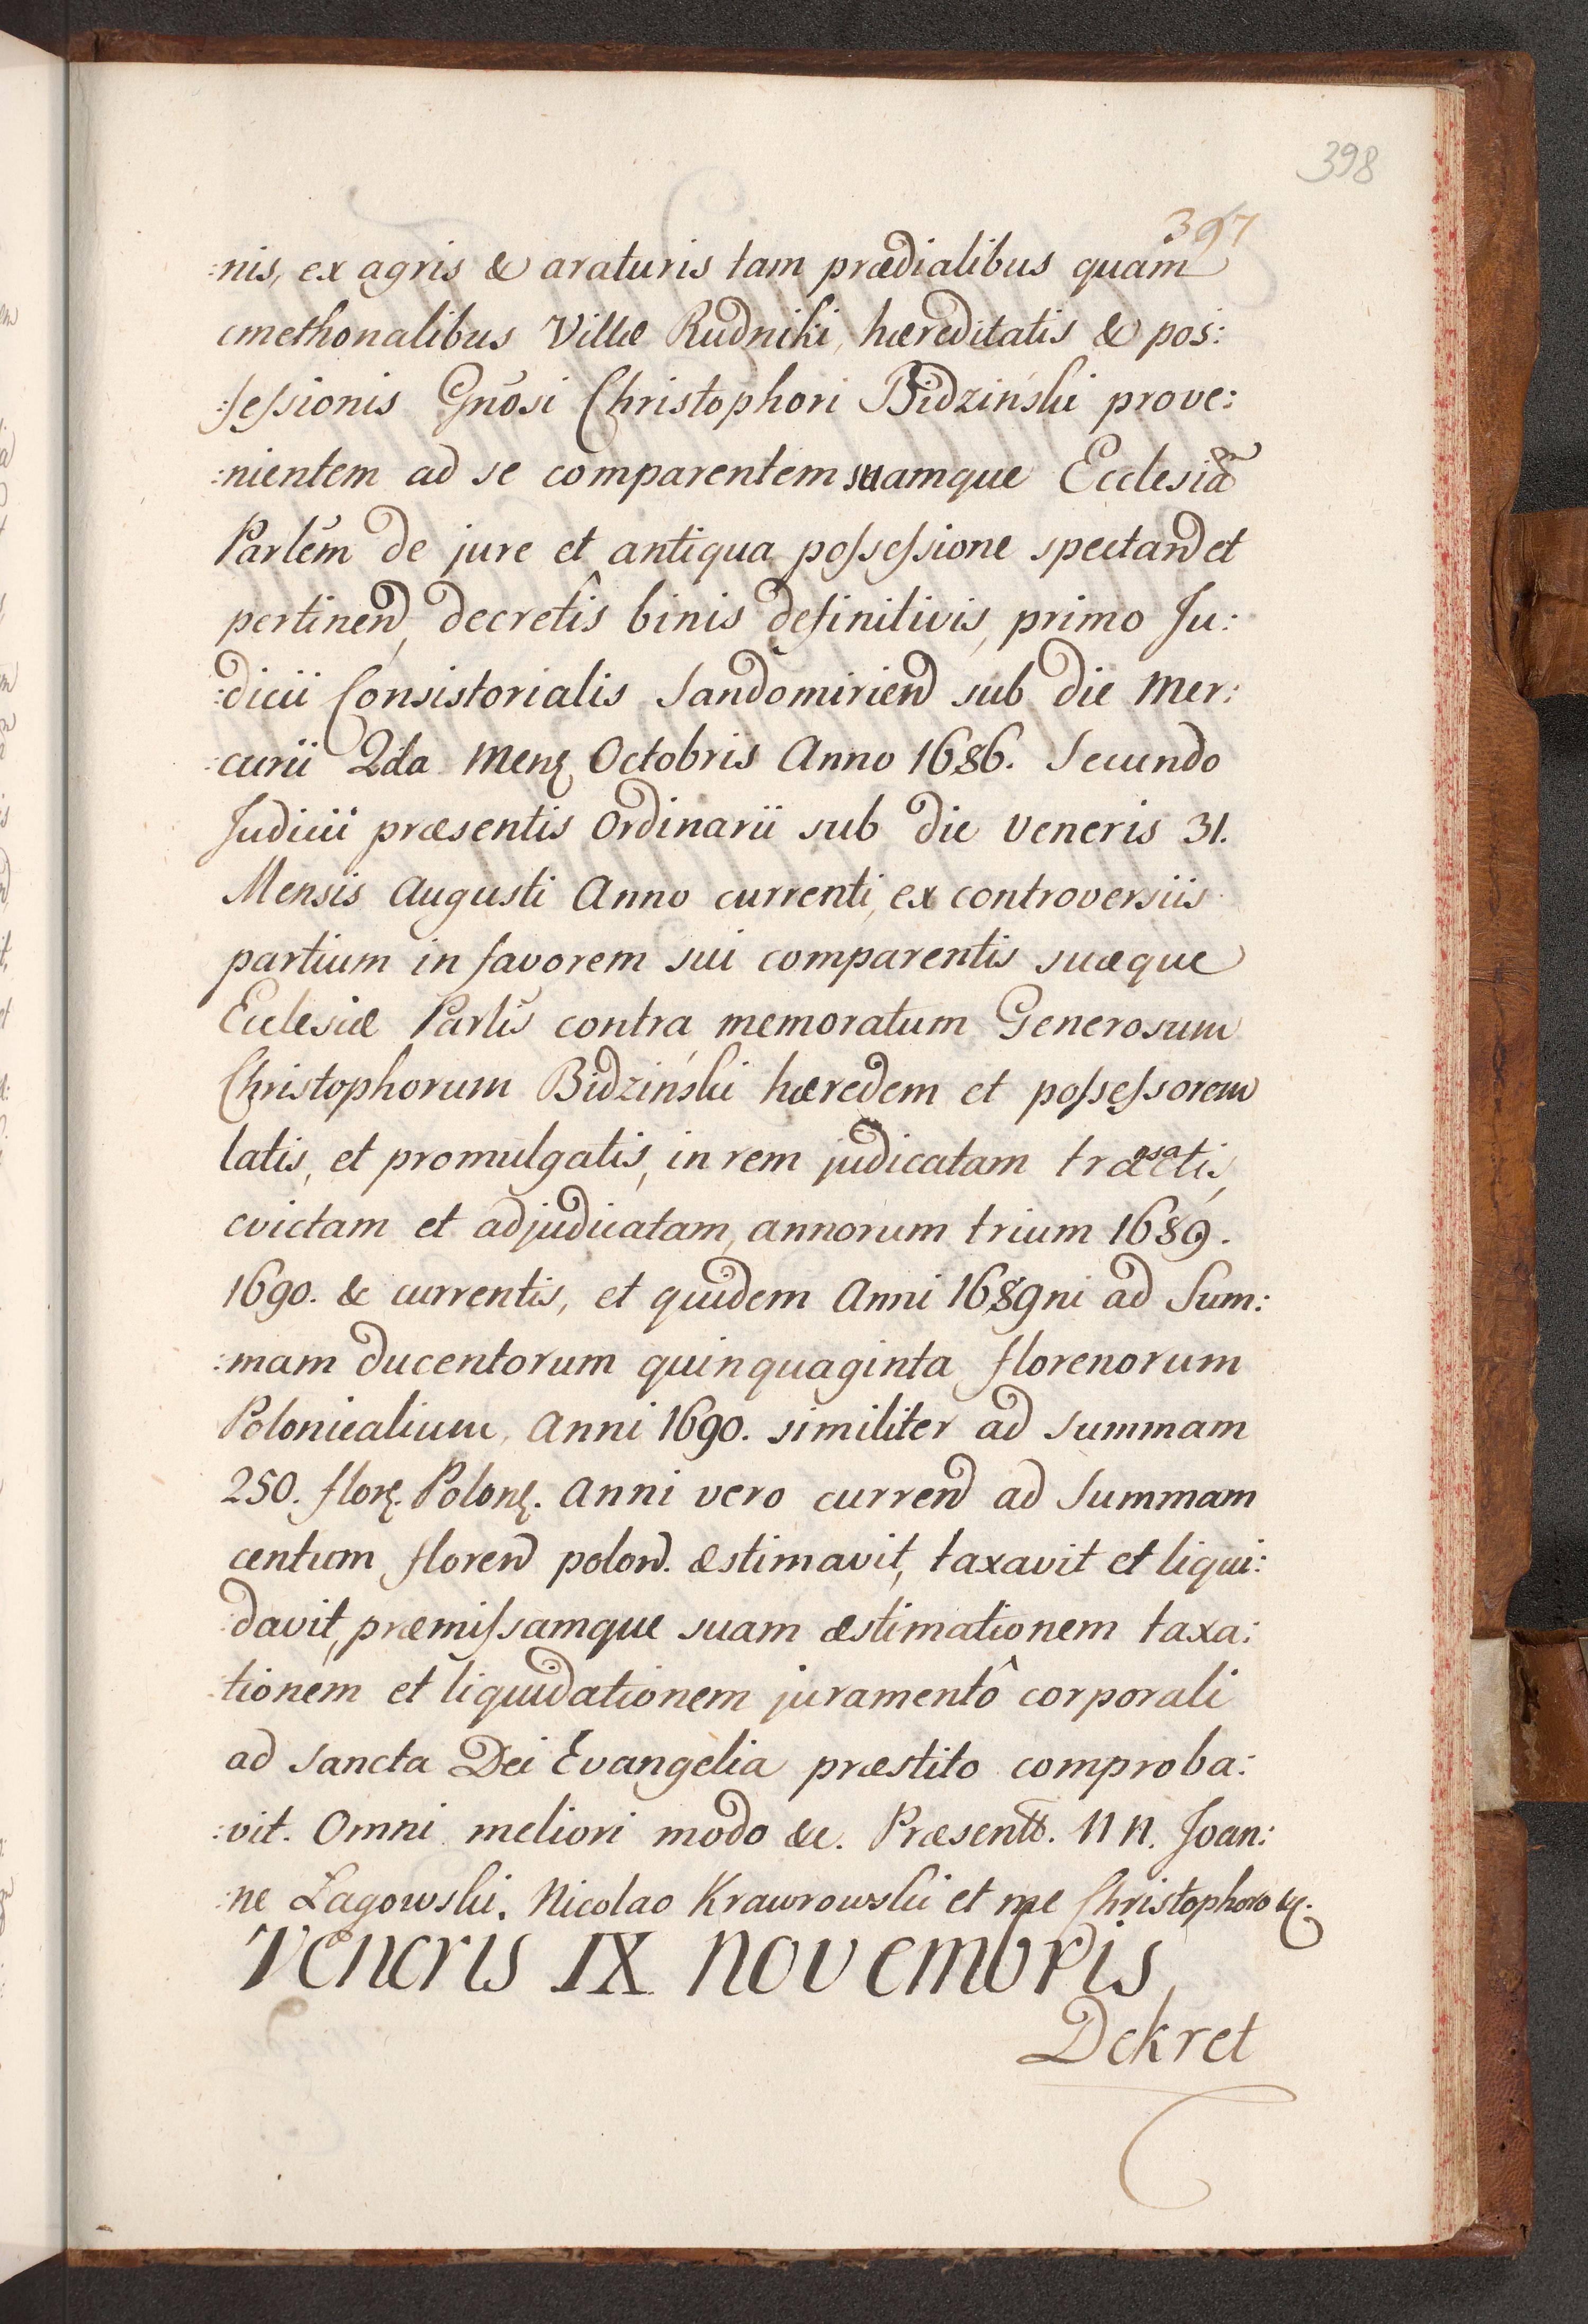 398
397
:nis, ex agris & araturis tam prædialibus quam
cmethonalibus Villæ Rudniki, hæreditatis & pos:
:sessionis Gnōsi Christophori Bidziński prove:
:nientem ad se comparentem suamque Ecclesiam
Parlēm de jure et antiqua possessione spectand et
pertinend, decretîs binis definitivis, primo Ju:
:dicii Consistorialis Sandomiriend sub die Mer:
:curii 2da Mens Octobris Anno 1686. Secundo
Judicii præsentis Ordinarii sub die Veneris 31.
Mensis Augusti Anno currenti, ex controversiis
partium in favorem sui comparentis suæque
Ecclesiæ Parlis contra memoratum Generosum
Christophorum Bidziński hæredem et possessorem
latis, et promulgatis, in rem judicatam
evictam et adjudicatam, annorum trium 1689.
1690. & currentis, et quidem Anni 1689ni ad Sum:
:mam ducentorum quinquaginta florenorum
Polonicalium, Anni 1690. similiter ad summam
250. flor. Polon. Anni vero currend ad Summam
centum florend polond. æstimavit, taxavit et liqui:
:davit, præmissamque suam æstimationem taxa:
:tionem et liquidationem juramentô corporali
ad Sancta Dei Evangelia præstito comproba:
:vit. Omni meliori modo &c. Præsentt. NN. Joan:
:ne Łagowski. Nicolao Krawrowski et me Christophoro &c.
Veneris IX Novembris
Dekret